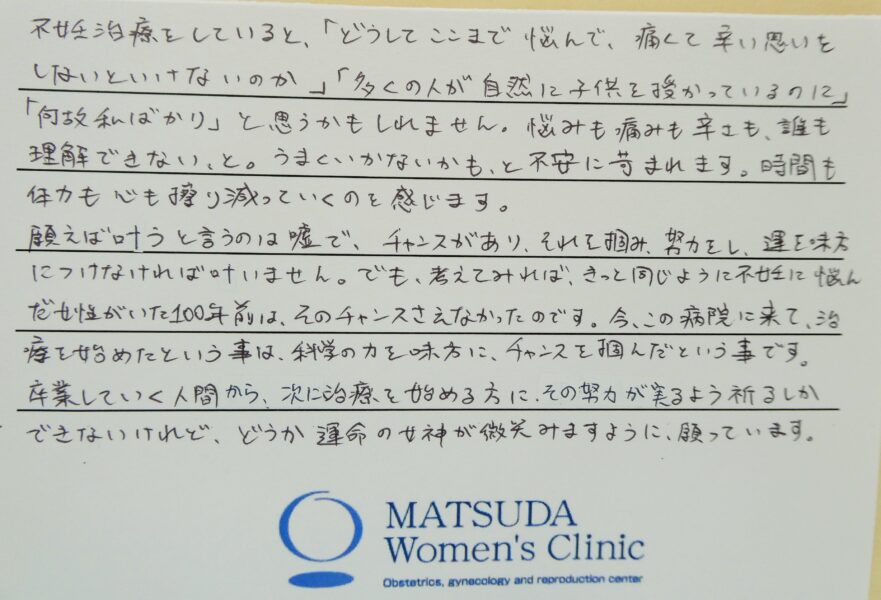 不妊治療をしていると、「どうしてここまで悩んで、痛くて辛い思いを
しないといけないのか」「多くの人が自然に子供を授かっているのに」
「何故私ばかり」と思うかもしれません。悩みも痛みも辛さも、誰も
理解できない、と。うまくいかないかも、と不安に苛まれます。時間も
体力も心も擦り減っていくのを感じます。
願えば叶うと言うのは嘘で、チャンスがあり、それを掴み、努力をし、運を味方
につけなければ叶いません。でも、考えてみれば、きっと同じように不妊に悩ん
だ女性がいた100年前は、そのチャンスさえなかったのです。今、この病院に来て、治
療を始めたという事は、科学の力を味方に、チャンスを掴んだという事です。
卒業していく人間から、次に治療を始める方に、その努力が実るよう祈るしか
できないけれど、どうか運命の女神が微笑みますように、願っています。
MATSUDA
Women's Clinic
Obstetrics, gynecology and reproduction center